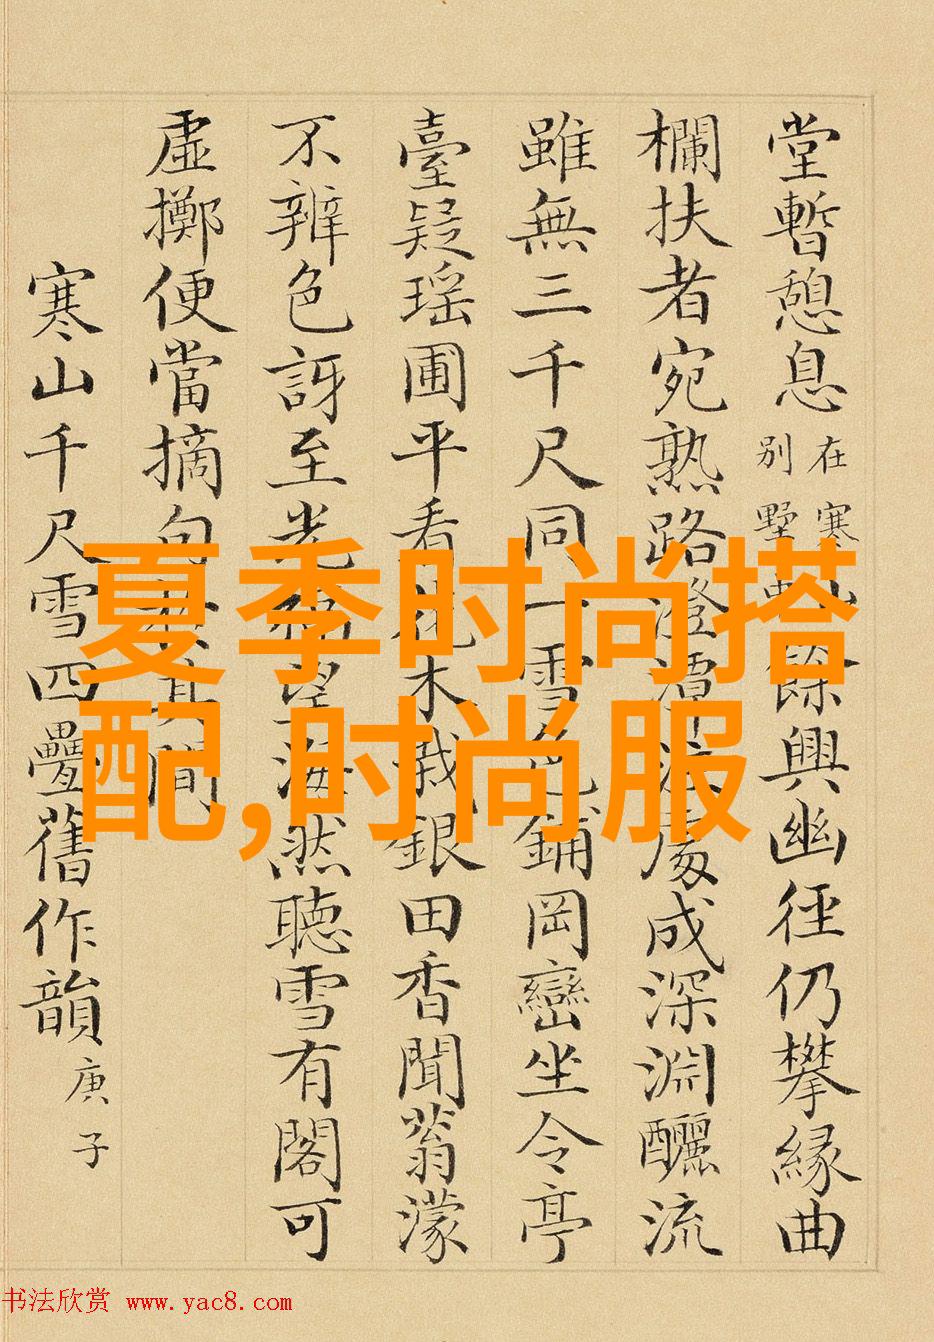 堂暫憩息在寒別墅餘興幽徑仍攀緣曲
欄扶者宛熟路澄潭成深淵釃流
雖無三千尺同一雪色鋪岡巒坐令亭
臺疑瑶圃平看木我銀田香聞蓊濛
不辨色訝至光望海然聽雪有閣可
虛擲便當摘句其間
寒山千尺雪四疊舊作韻庚子
夏季时尚搭
配,时尚服
书法欣赏 www.yac8.com